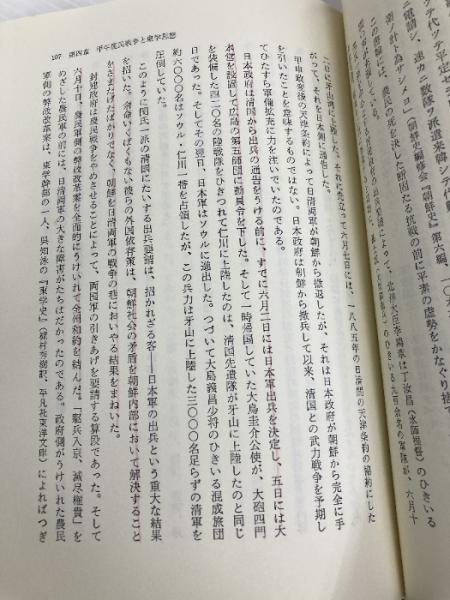 107　第四章　甲午農民戦争と東学思想
二日に牙山湾に上陸した。これに先だって六月七日には、一八八五年の日清間の天津条約の規約にした
がって、それを日本側に通告した。
甲申政変後の天津条約によって日清両軍が朝鮮から撤退したが、それは日本政府が朝鮮から完全に手
を引いたことを意味するものではない。日本政府は朝鮮から撤兵して以来、清国との武力戦争を予期し
てひたすら軍備拡充に力を注いでいたのである。
日本政府は清国から出兵の通告をうける前に、すでに六月二日には日本軍出兵を決定し、五日には大
本営を設置して広島の第五師団に動員令を下した。そして一時帰国していた大鳥圭介公使が、大砲四門
を装備した四二〇名の陸戦隊をひきつれて仁川に上陸したのは、清国先遣隊が牙山に上陸したのと同じ
日であった。そしてその翌日、日本軍はソウルに進出した。つづいて大島義昌少将のひきいる混成旅団
約六〇〇〇名はソウル・仁川一帯を占領したが、この兵力は牙山に上陸した三〇〇〇名足らずの清軍を
圧倒していた。
このように閔氏一派の清国にたいする出兵要請は、招かれざる客――日本軍の出兵という重大な結果
を招いた。余命いくばくもない彼らの外国依存は、朝鮮社会の矛盾を朝鮮内部において解決すること
をさまたげたばかりでなく、朝鮮を日清両軍の戦争の巷においやる結果をまねいた。
封建政府は農民戦争をやめさせることによって、両国軍の引きあげを要請する算段であった。そして
六月十日、農民軍側の弊政改革案を全面的にうけいれて全州和約を結んだ。「駆兵入京、滅尽権貴」を
めざした農民軍の前には、日清両軍の大きな障害がたちはだかったのである。政府側がうけいれた農民
軍側の弊政改革案は、東学幹部の一人、呉知泳の『東学史』(梶村秀樹訳、平凡社東洋文庫)によればつぎ